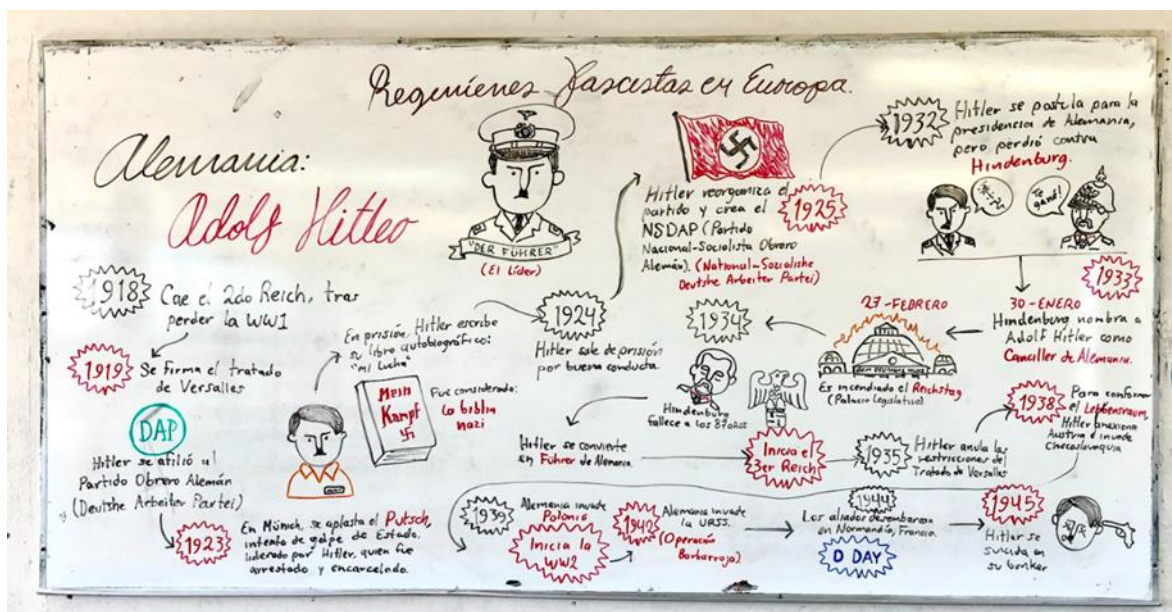 Regímenes fascistas en Europa.
Alemania:
Adolf Hitler
"DER FÜHRER"
(El Líder)
1918
Cae el 2do Reich, tras
perder la WW1
1919
Se firma el tratado
de Versalles
DAP
Hitler se afilió al
Partido Obrero Alemán
(Deutshe Arbeiter Partei)
1923
En Múnich, se aplasta el Putsch,
intento de golpe de Estado,
liderado por Hitler, quien fue
arrestado y encarcelado.
En prisión, Hitler escribe
su libro autobiográfico:
"Mi lucha"
Mein
Kampf
Fue considerado:
La biblia
nazi
1924
Hitler sale de prisión
por buena conducta.
Hitler reorganiza el
partido y crea el
NSDAP (Partido
Nacional-Socialista Obrero
Alemán). (National-Socialishe
Deutshe Arbeiter Partei)
1925
1932
Hitler se postula para la
presidencia de Alemania,
pero perdió contra
Hindenburg.
Te
gané!
1933
30-ENERO
Hindenburg nombra a
Adolf Hitler como
Canciller de Alemania.
27-FEBRERO
Es incendiado el Reichstag
(Palacio Legislativo)
1934
Hindenburg
fallece a los 87 años
Hitler se convierte
en Führer de Alemania
Inicia el
3er Reich
1935
Hitler anula las
restricciones del
Tratado de Versalles
1938
Para conformar
el Lebbensraum,
Hitler anexiona
Austria e invade
Checoslovaquia
1939
Alemania invade
Polonia
Inicia la
WW2
1942
Alemania invade
la URSS.
(Operación
Barbarroja)
1944
Los aliados desembarcan
en Normandía, Francia.
D DAY
1945
Hitler se
suicida en
su bunker